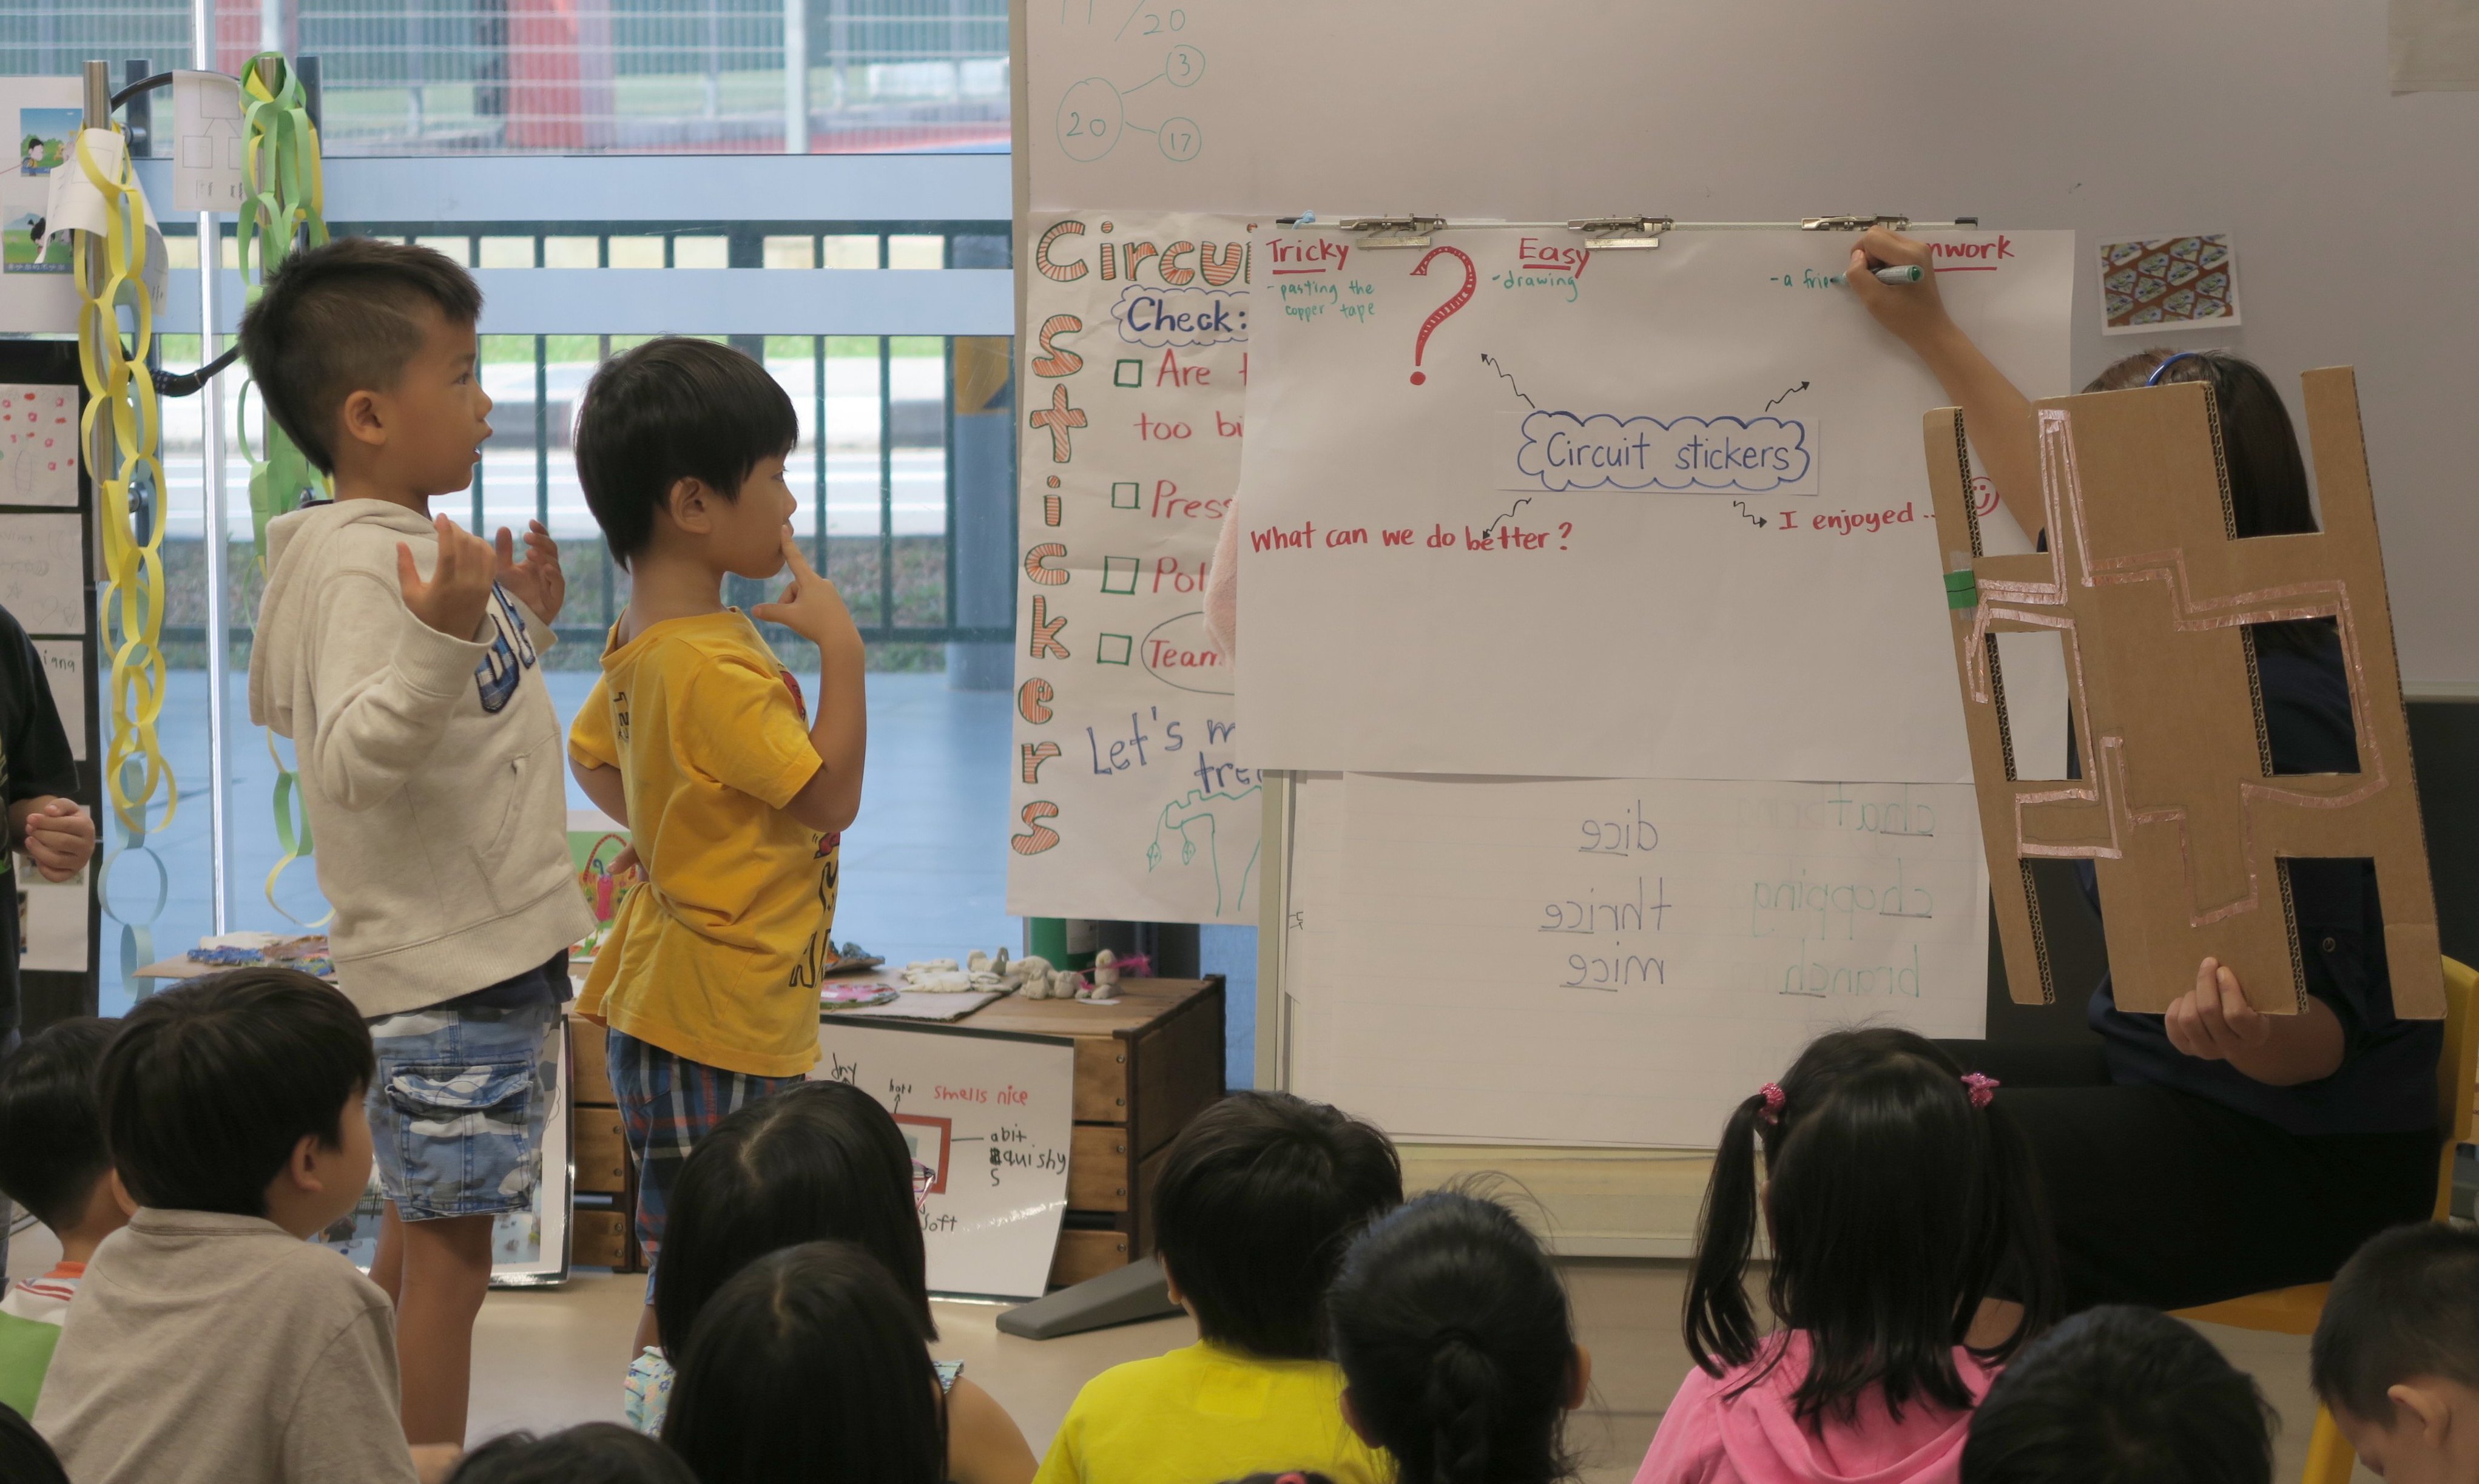 /20
20
3
17
Circui
Stickers
Check:
Are t
too bi
Press
Pol
Team
Let's m
tre
Tricky
- pasting the
copper tape
?
Easy
- drawing
nwork
- a frie
Circuit stickers
What can we do better?
I enjoyed ..
dice
thrice
mice
chopping
branch
dry
smells nice
abit
squishy
s
soft